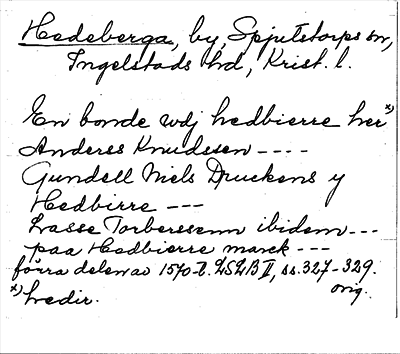 Hedeberga, by, Spjutstorps sn,
Ingelstads hd, Krist. l.
En bonde wdj hedbierre her x)
Anders Knudssen ----
Gundell Niels Druckens y
Hedbirre ---
Lasse Torberssenn ibidem ---
paa Hedbierre marck ---
förra delen av 1570-t. LSLB II, ss. 327-329.
orig.
x) hedir.